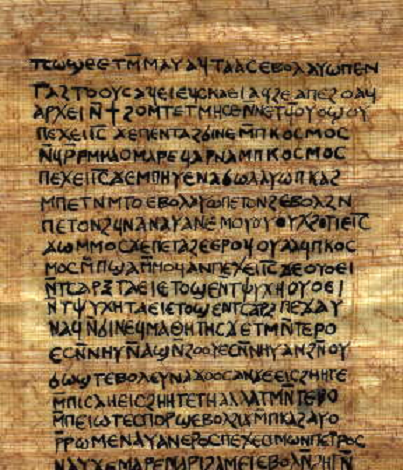 ⲧⲥⲱϣⲉ ⲉⲧⲙ̄ⲙⲁⲩ ⲁϥⲧⲁⲁⲥ ⲉⲃⲟⲗ ⲁⲩⲱ ⲡⲉⲛ
ⲧⲁϩⲧⲟⲟⲩⲥ ⲁϥⲉⲓ ⲉϥⲥⲕⲁⲉⲓ ⲁϥϩⲉ ⲁⲡⲉϩⲟ ⲁϥ
ⲁⲣⲭⲉⲓ ⲛ̄ϯ ϩⲟⲙⲧ ⲉⲧⲙⲏⲥⲉ ⲛⲛⲉⲧϥⲟⲩⲟϣⲟⲩ
ⲡⲉϫⲉ ⲓ̅ⲥ̅ ϫⲉ ⲡⲉⲛⲧⲁϩϭⲓⲛⲉ ⲙ̄ⲡⲕⲟⲥⲙⲟⲥ
ⲛ̄ϥⲣ̄ ⲣⲙ̄ⲙⲁⲟ ⲙⲁⲣⲉϥⲁⲣⲛⲁ ⲙⲡⲕⲟⲥⲙⲟⲥ
ⲡⲉϫⲉ ⲓ̅ⲥ̅ ϫⲉ ⲙⲡⲏⲩⲉ ⲛⲁϭⲱⲗ ⲁⲩⲱ ⲡⲕⲁϩ
ⲙⲡⲉⲧⲛ̄ⲙⲧⲟ ⲉⲃⲟⲗ ⲁⲩⲱ ⲡⲉⲧⲟⲛϩ ⲉⲃⲟⲗ ϩⲛ̄
ⲡⲉⲧⲟⲛϩ ϥⲛⲁⲛⲁⲩ ⲁⲛ ⲉⲙⲟⲩ ⲟⲩⲭ ϩⲟⲧⲓ ⲉⲓ̅ⲥ̅
ϫⲱ ⲙⲙⲟⲥ ϫⲉ ⲡⲉⲧⲁϩⲉ ⲉⲣⲟϥ ⲟⲩⲁⲁϥ ⲡⲕⲟⲥ
ⲙⲟⲥ ⲙ̄ⲡϣⲁ ⲙ̄ⲙⲟϥ ⲁⲛ ⲡⲉϫⲉ ⲓ̅ⲥ̅ ϫⲉ ⲟⲩⲟⲉⲓ
ⲛ̄ⲧⲥⲁⲣⲝ ⲧⲁⲉⲓ ⲉⲧⲟϣⲉ ⲛⲧⲯⲩⲭⲏ ⲟⲩⲟⲉⲓ
ⲛⲧⲯⲩⲭⲏ ⲧⲁⲉⲓ ⲉⲧⲟϣⲉ ⲛⲧⲥⲁⲣⲝ ⲡⲉϫⲁⲩ
ⲛⲁϥ ⲛ̄ϭⲓ ⲛⲉϥⲙⲁⲑⲏⲧⲏⲥ ϫⲉ ⲧⲙⲛ̄ⲧⲉⲣⲟ
ⲉⲥⲛ̄ⲛⲏⲩ ⲛ̄ⲁϣ ⲛϩⲟⲟⲩ ⲉⲥⲛ̄ⲛⲏⲩ ⲁⲛ ϩⲛ̄ ⲟⲩ
ϭⲱϣⲧ ⲉⲃⲟⲗ ⲉⲩⲛⲁϫⲟⲟⲥ ⲁⲛ ϫⲉ ⲉⲓⲥ ϩⲏⲏⲧⲉ
ⲙ̄ⲡⲓⲥⲁ ⲏ ⲉⲓⲥ ϩⲏⲏⲧⲉ ⲧⲏ ⲁⲗⲗⲁ ⲧⲙⲛ̄ⲧⲉⲣⲟ
ⲙ̄ⲡⲉⲓⲱⲧ ⲉⲥⲡⲟⲣϣ ⲉⲃⲟⲗ ϩⲓϫⲙ̄ ⲡⲕⲁϩ ⲁⲩⲱ
ⲣ̄ⲣⲱⲙⲉ ⲛⲁⲩ ⲁⲛ ⲉⲣⲟⲥ ⲡⲉϫⲉ ⲥⲓⲙⲱⲛ ⲡⲉⲧⲣⲟⲥ
ⲛⲁⲩ ϫⲉ ⲙⲁⲣⲉ ⲙⲁⲣⲓϩⲁⲙ ⲉⲓ ⲉⲃⲟⲗ ⲛ̄ϩⲏⲧⲛ̄